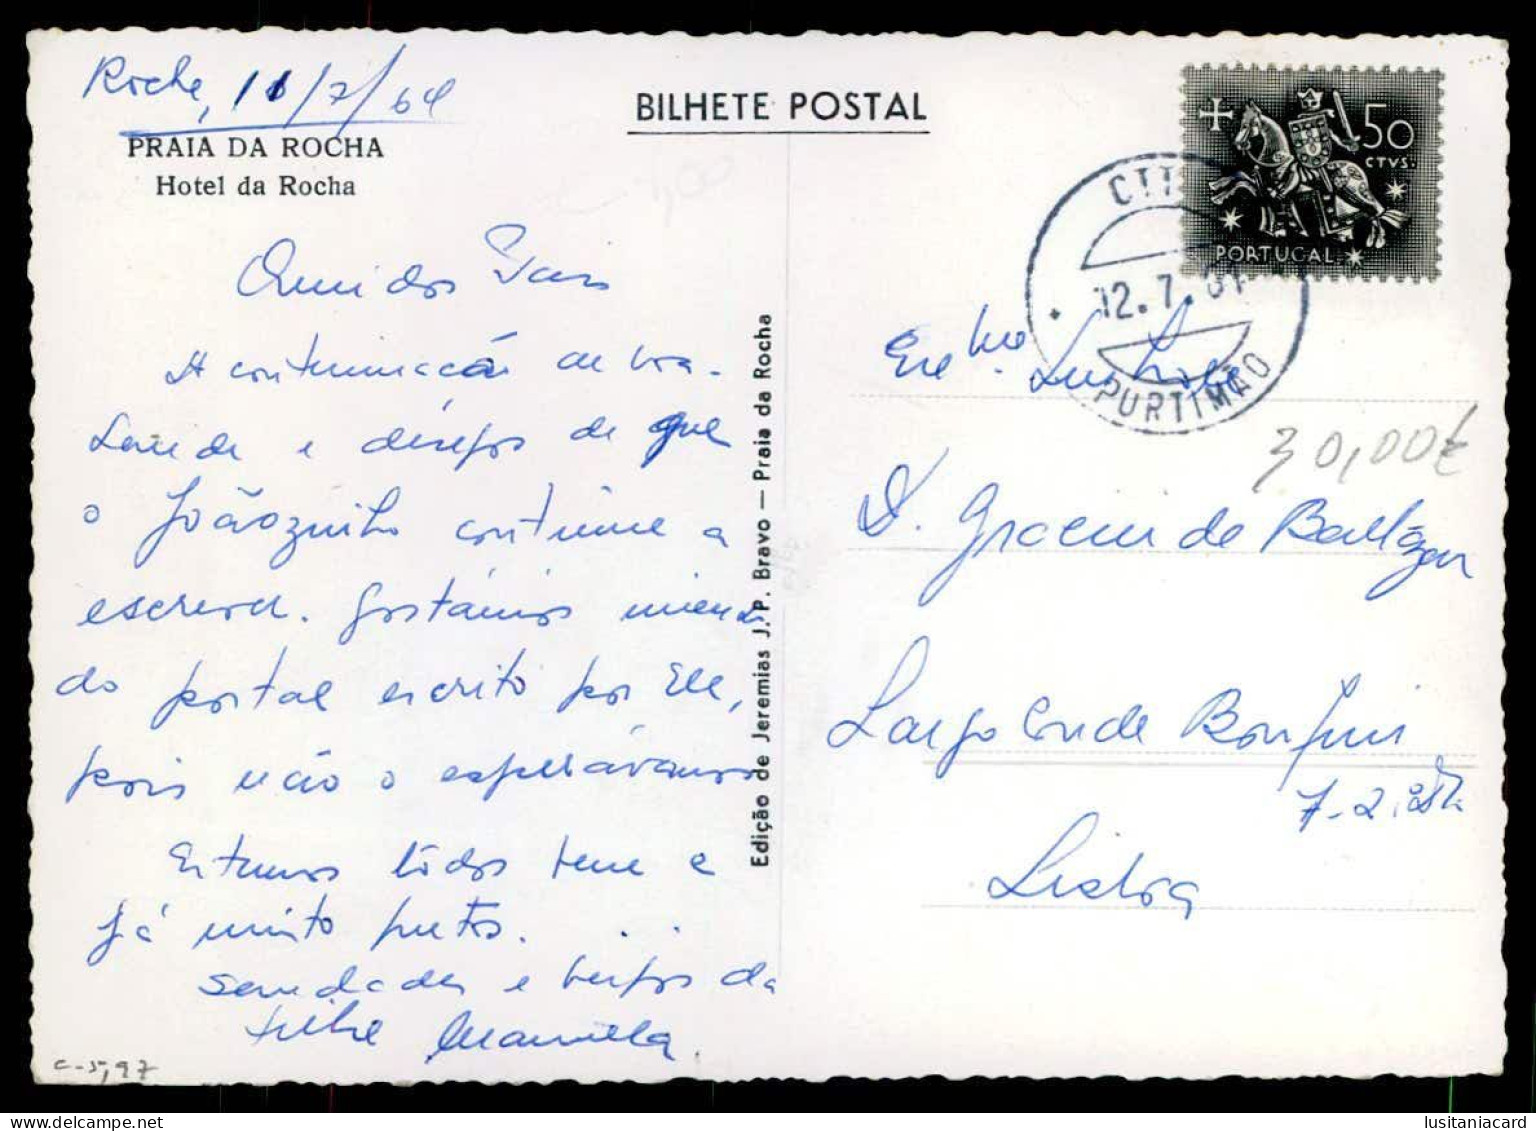 Rocha, 11/7/64
PRAIA DA ROCHA
Hotel da Rocha
BILHETE POSTAL
50
CTVS.
PORTUGAL
CTT
12.7.64
PORTIMÃO
Queridos Pais
A continuação de boa
saude e desejos de que
o Joãozinho continue a
escrever. Gostámos imenso
do postal escrito por Ele,
pois não o esperávamos
Estamos todos bem e
já muito pretos.
Saudades e beijos da
filha Manuela
Edição de Jeremias J. P. Bravo — Praia da Rocha
Exma. Senhora
D. Gracinda Baltazar
Largo Conde Bonfim
7-2.º
Lisboa
30,00€
c-5,97
lusitaniacard